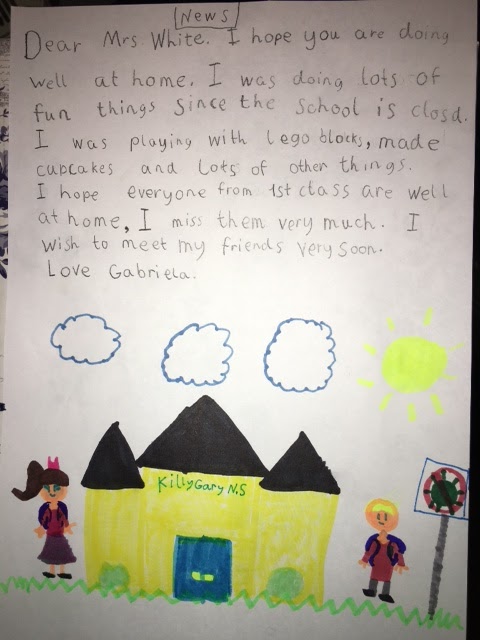 News
Dear Mrs White. I hope you are doing
well at home. I was doing lots of
fun things since the school is closd.
I was playing with lego blocks, made
cupcakes and lots of other things.
I hope everyone from 1st class are well
at home, I miss them very much. I
wish to meet my friends very soon.
Love Gabriela.
Killygary N.S